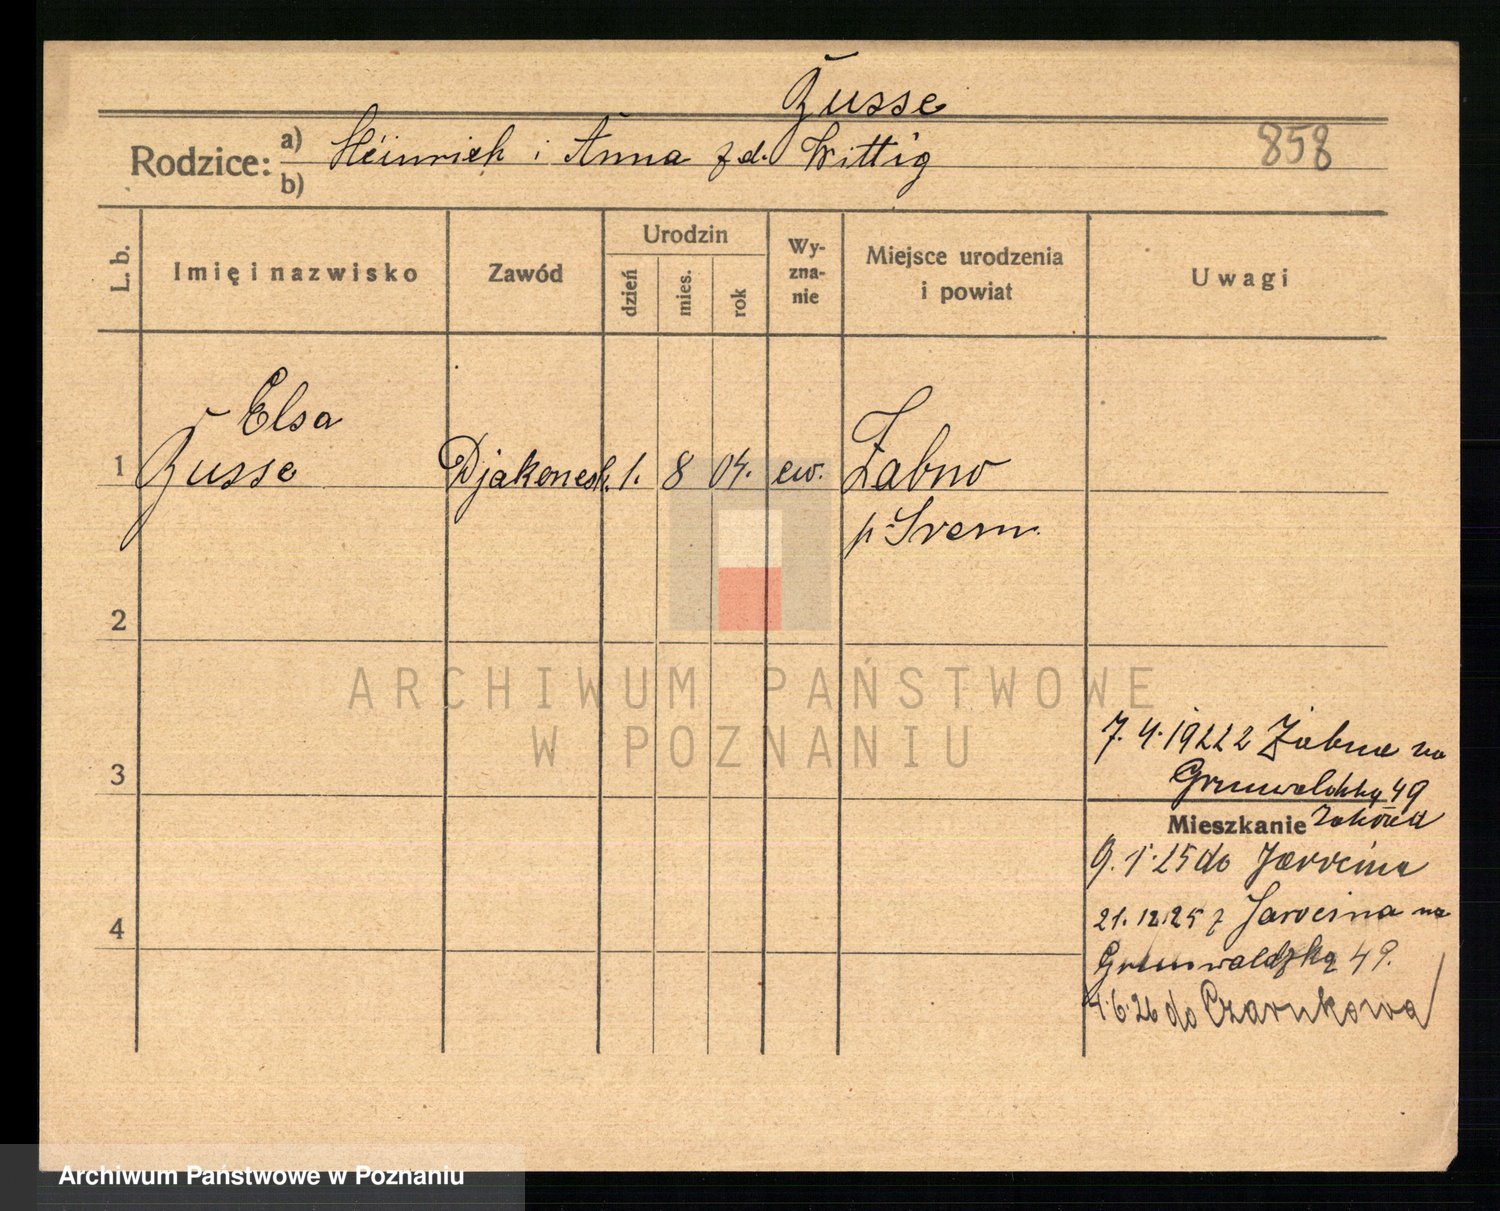 Zusse
Rodzice: a) Heinrich i Anna z d. Wittig 858
b)
L. b.
Imię i nazwisko
Zawód
Urodzin
dzień
mies.
rok
Wy-
zna-
nie
Miejsce urodzenia
i powiat
Uwagi
Elsa
1 Zusse Djakonesk. 1. 8 04. ew. Żabno
p. Śrem
2
ARCHIWUM PAŃSTWOWE
W POZNANIU
3
7. 4. 1922 z Żabna na
Grunwaldzką 49
Mieszkanie
9. 1. 25 do Jarocina
21. 12. 25 z Jarocina na
4
Grunwaldzką 49.
4. 6. 26 do Czarnkowa
Archiwum Państwowe w Poznaniu